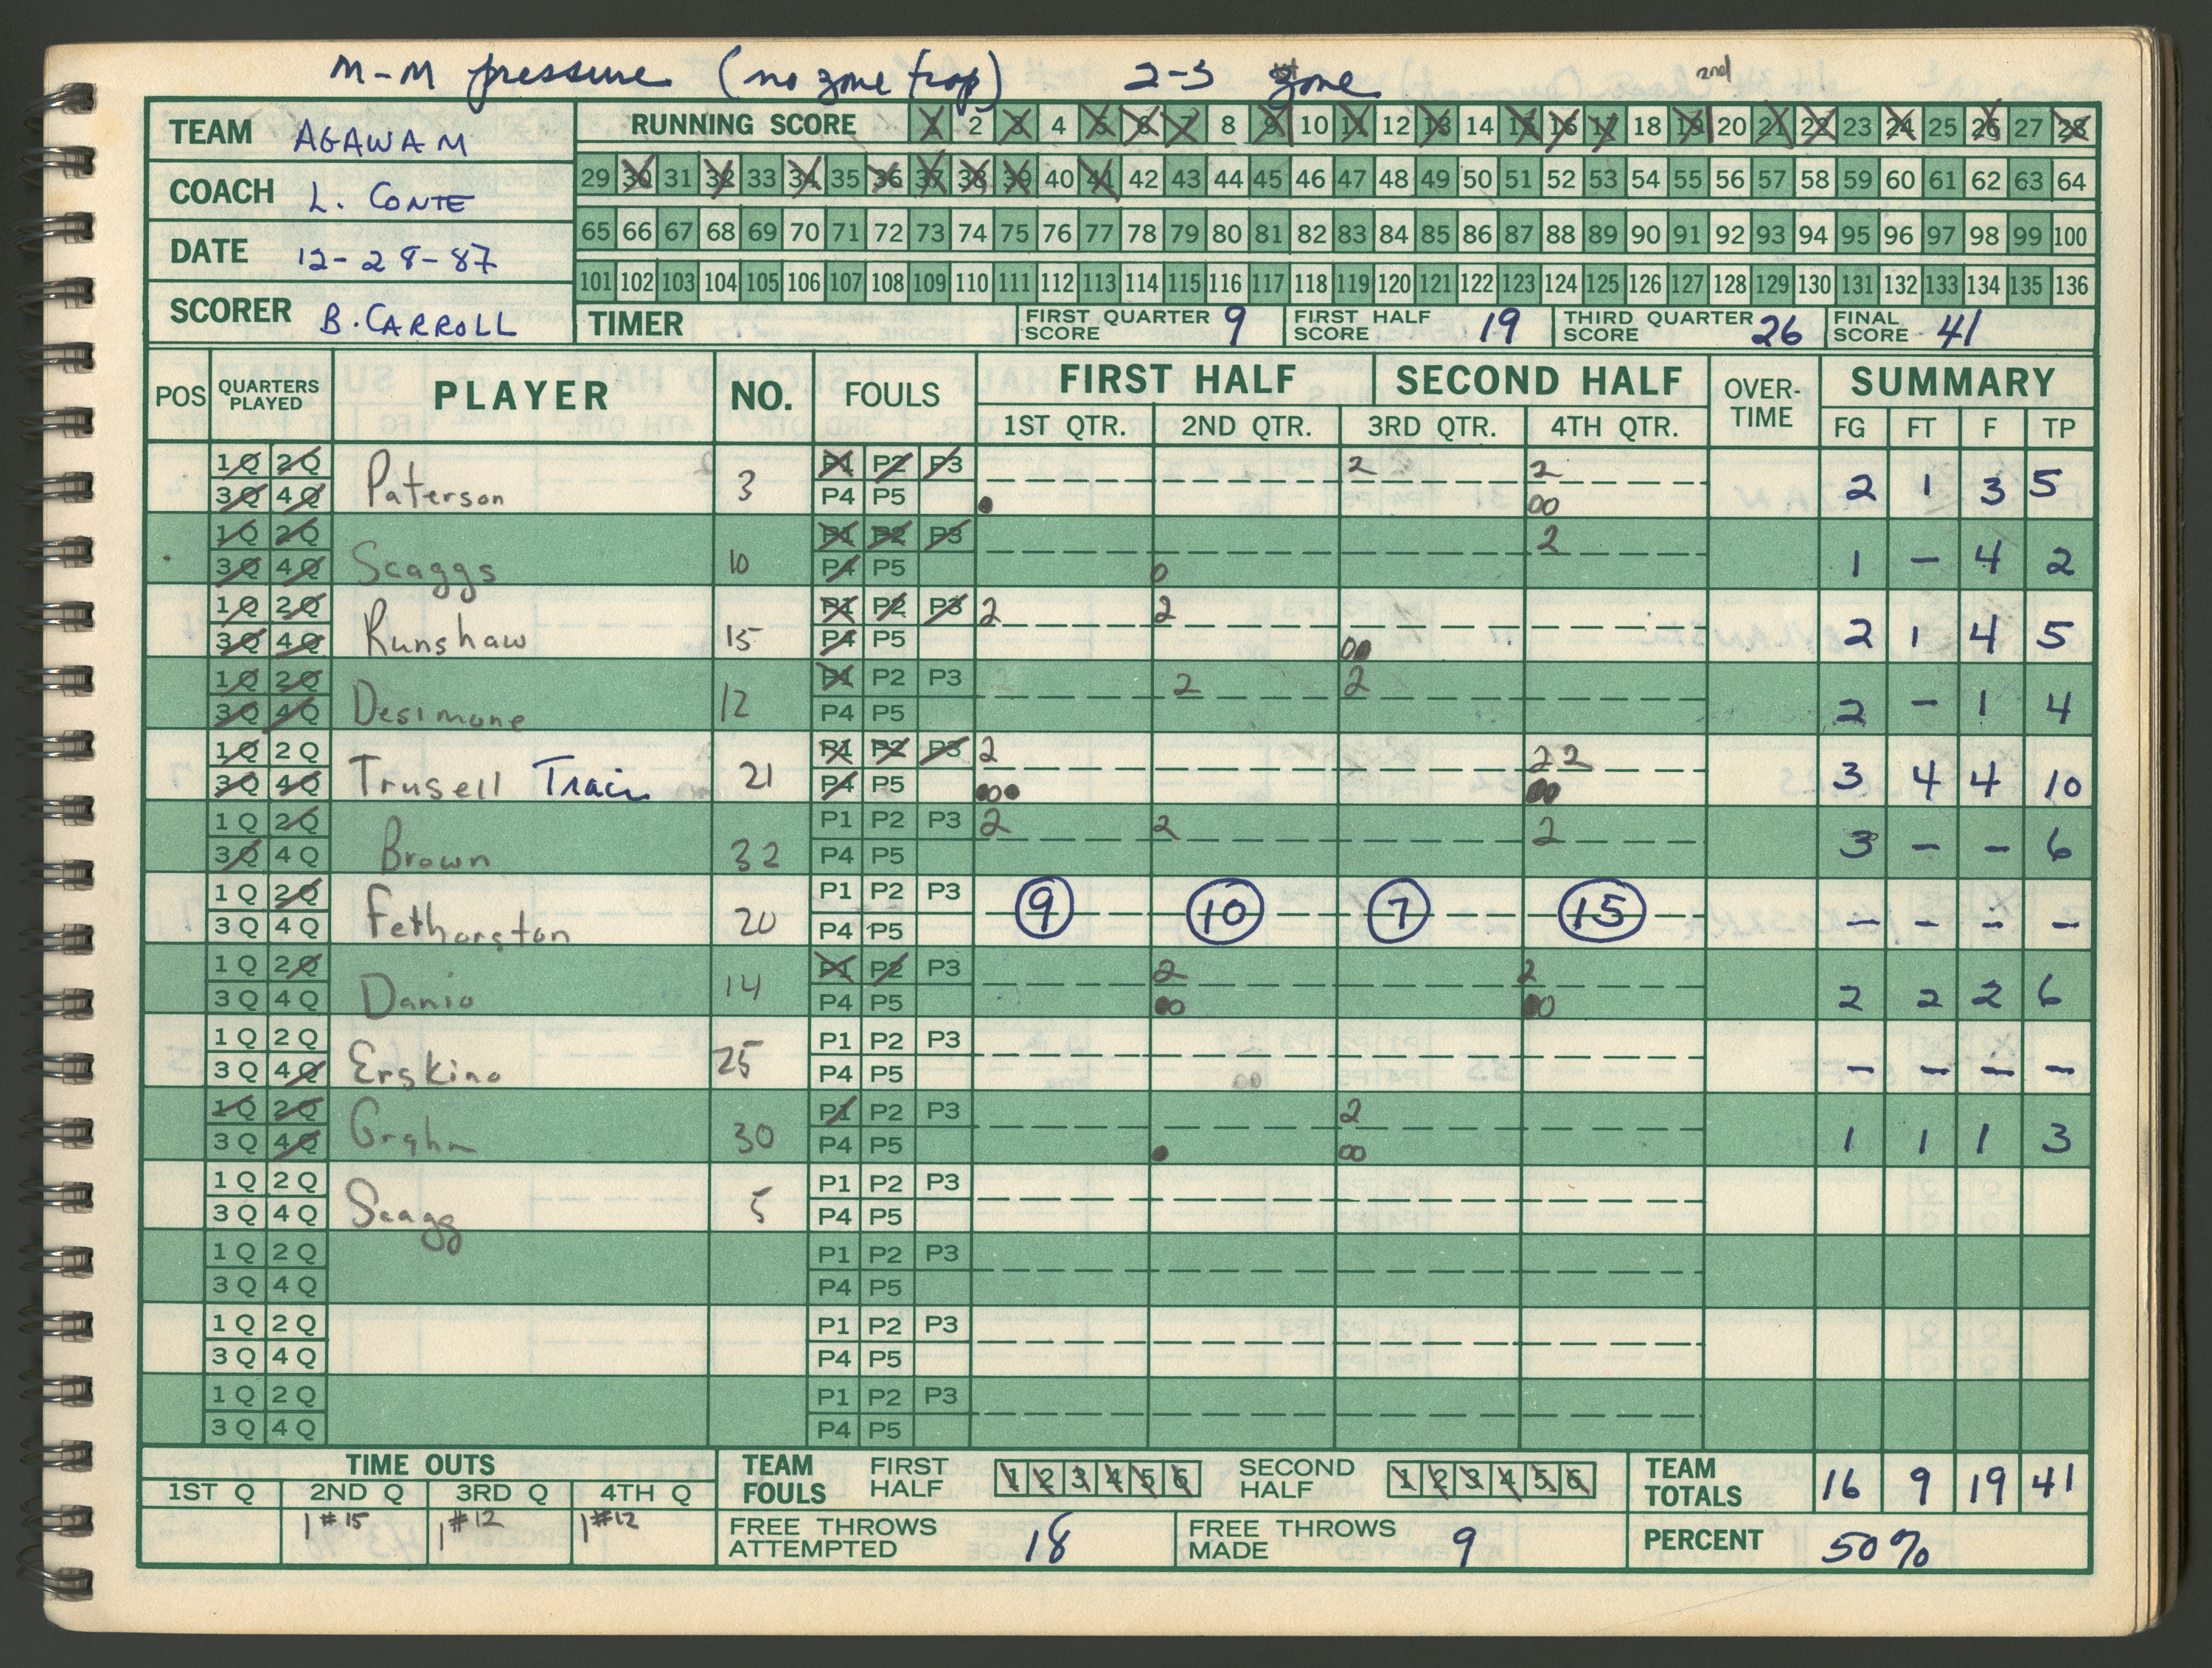 M-M pressure (no zone trap) 2-3 zone 2nd
TEAM AGAWAM
COACH L. CONTE
DATE 12-28-87
SCORER B. CARROLL
RUNNING SCORE 1 2 3 4 5 6 7 8 9 10 11 12 13 14 15 16 17 18 19 20 21 22 23 24 25 26 27 28
29 30 31 32 33 34 35 36 37 38 39 40 41 42 43 44 45 46 47 48 49 50 51 52 53 54 55 56 57 58 59 60 61 62 63 64
65 66 67 68 69 70 71 72 73 74 75 76 77 78 79 80 81 82 83 84 85 86 87 88 89 90 91 92 93 94 95 96 97 98 99 100
101 102 103 104 105 106 107 108 109 110 111 112 113 114 115 116 117 118 119 120 121 122 123 124 125 126 127 128 129 130 131 132 133 134 135 136
TIMER FIRST QUARTER SCORE 9 FIRST HALF SCORE 19 THIRD QUARTER SCORE 26 FINAL SCORE 41
POS QUARTERS PLAYED PLAYER NO. FOULS FIRST HALF SECOND HALF OVER-TIME SUMMARY
1ST QTR. 2ND QTR. 3RD QTR. 4TH QTR. FG FT F TP
1Q 2Q P1 P2 P3 2 2
3Q 4Q Paterson 3 P4 P5 2 1 3 5
1Q 2Q P1 P2 P3 2
3Q 4Q Scaggs 10 P4 P5 1 - 4 2
1Q 2Q P1 P2 P3 2 2
3Q 4Q Runshaw 15 P4 P5 2 1 4 5
1Q 2Q P1 P2 P3 2 2
3Q 4Q Desimone 12 P4 P5 2 - 1 4
1Q 2Q P1 P2 P3 2 2 2
3Q 4Q Trusell Traci 21 P4 P5 3 4 4 10
1Q 2Q P1 P2 P3 2 2 2
3Q 4Q Brown 32 P4 P5 3 - - 6
1Q 2Q P1 P2 P3 9 10 7 15
3Q 4Q Fethorston 20 P4 P5 - - - -
1Q 2Q P1 P2 P3 2 2
3Q 4Q Danio 14 P4 P5 2 2 2 6
1Q 2Q P1 P2 P3
3Q 4Q Erskino 25 P4 P5 - - - -
1Q 2Q P1 P2 P3 2
3Q 4Q Grahm 30 P4 P5 1 1 1 3
1Q 2Q P1 P2 P3
3Q 4Q Scagg 5 P4 P5
1Q 2Q P1 P2 P3
3Q 4Q P4 P5
1Q 2Q P1 P2 P3
3Q 4Q P4 P5
1Q 2Q P1 P2 P3
3Q 4Q P4 P5
TIME OUTS TEAM FOULS FIRST HALF 1 2 3 4 5 6 SECOND HALF 1 2 3 4 5 6 TEAM TOTALS 16 9 19 41
1ST Q 2ND Q 3RD Q 4TH Q
1 #15 1 #12 1 #12 FREE THROWS ATTEMPTED 18 FREE THROWS MADE 9 PERCENT 50%